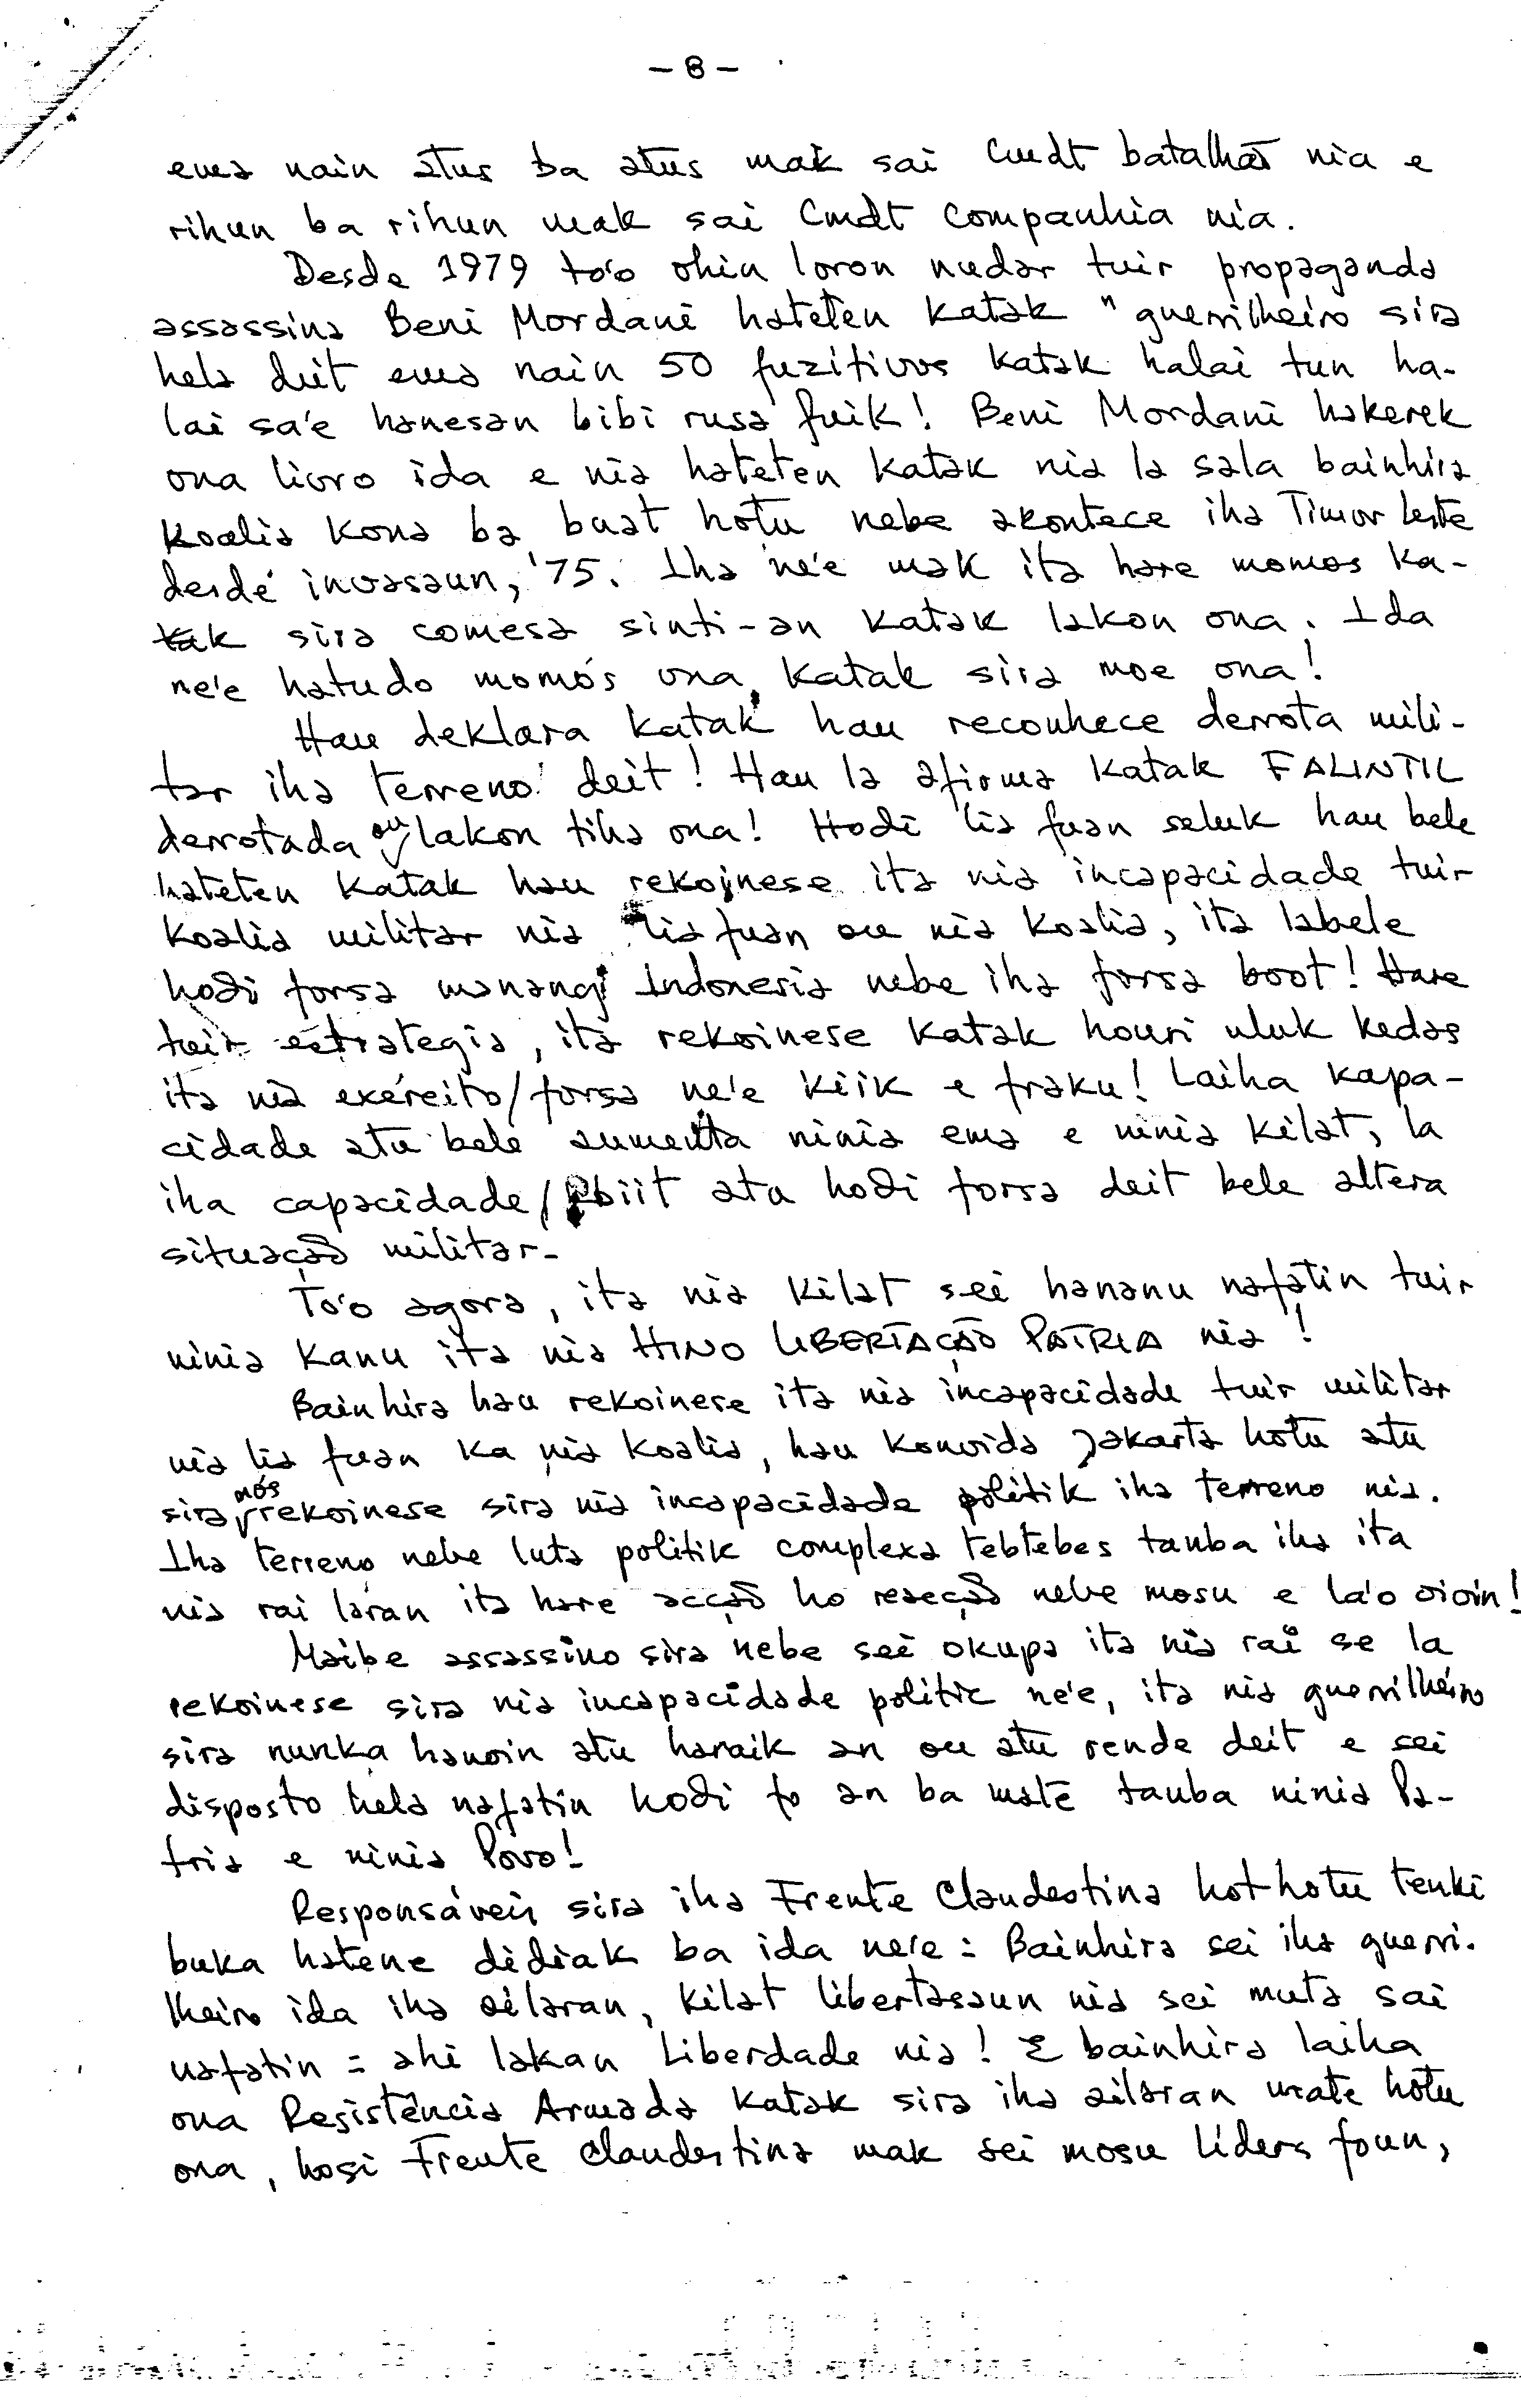 - 8 -
ema nain atus ba atus mak sai Cmdt batalhão nia e
rihun ba rihun mak sai Cmdt Companhia nia.
Desde 1979 to'o ohin loron nudar tuir propaganda
assassina Beni Mordani hateten katak "guerrilheiro sira
hela deit ema nain 50 fuzitivos katak halai tun ha-
lai sa'e hanesan bibi rusa fuik! Beni Mordani hakerek
ona livro ida e nia hateten katak nia la sala bainhira
koalia kona ba buat hotu nebe akontece iha Timor Leste
desde invasaun, '75. Iha ne'e mak ita hare momos ka-
tak sira comesa sinti-an katak lakon ona. Ida
ne'e hatudo momós ona, katak sira moe ona!
Hau deklara katak hau reconhece derrota mili-
tar iha terreno deit! Hau la afirma katak FALINTIL
derrotada ou lakon tiha ona! Hodi lia fuan seluk hau bele
hateten katak hau rekoinese ita nia incapacidade tuir
koalia militar nia lia fuan ou nia koalia, ita labele
hodi forsa manang Indonesia nebe iha forsa boot! Hare
tuir estrategia, ita rekoinese katak houri uluk kedas
ita nia exército/forsa ne'e kiik e fraku! Laiha kapa-
cidade atu bele aumenta ninia ema e ninia kilat, la
iha capacidade/kbiit atu hodi forsa deit bele altera
situação militar-
To'o agora, ita nia kilat sei hananu nafatin tuir
ninia kanu ita nia HINO LIBERTAÇÃO PÁTRIA nia!
Bainhira hau rekoinese ita nia incapacidade tuir militar
nia lia fuan ka nia koalia, hau konvida Jakarta hotu atu
sira mós rekoinese sira nia incapacidade politik iha terreno nia.
Iha terreno nebe luta politik complexa tebtebes tanba iha ita
nia rai laran ita hare acção ho reacção nebe mosu e la'o oioin!
Maibe assassino sira nebe sei okupa ita nia rai se la
rekoinese sira nia incapacidade politic ne'e, ita nia guerrilheiro
sira nunka hanoin atu haraik an ou atu rende deit e sei
disposto hela nafatin hodi fo an ba mate tanba ninia Pa-
tria e ninia Povo!
Responsáveis sira iha Frente Clandestina hothotu tenki
buka hatene didiak ba ida ne'e: Bainhira sei iha guerri-
lheiro ida iha ailaran, kilat libertasaun nia sei muta sai
nafatin = ahi lakan Liberdade nia! E bainhira laiha
ona Resistência Armada katak sira iha ailaran mate hotu
ona, hosi Frente Clandestina mak sei mosu líders foun,